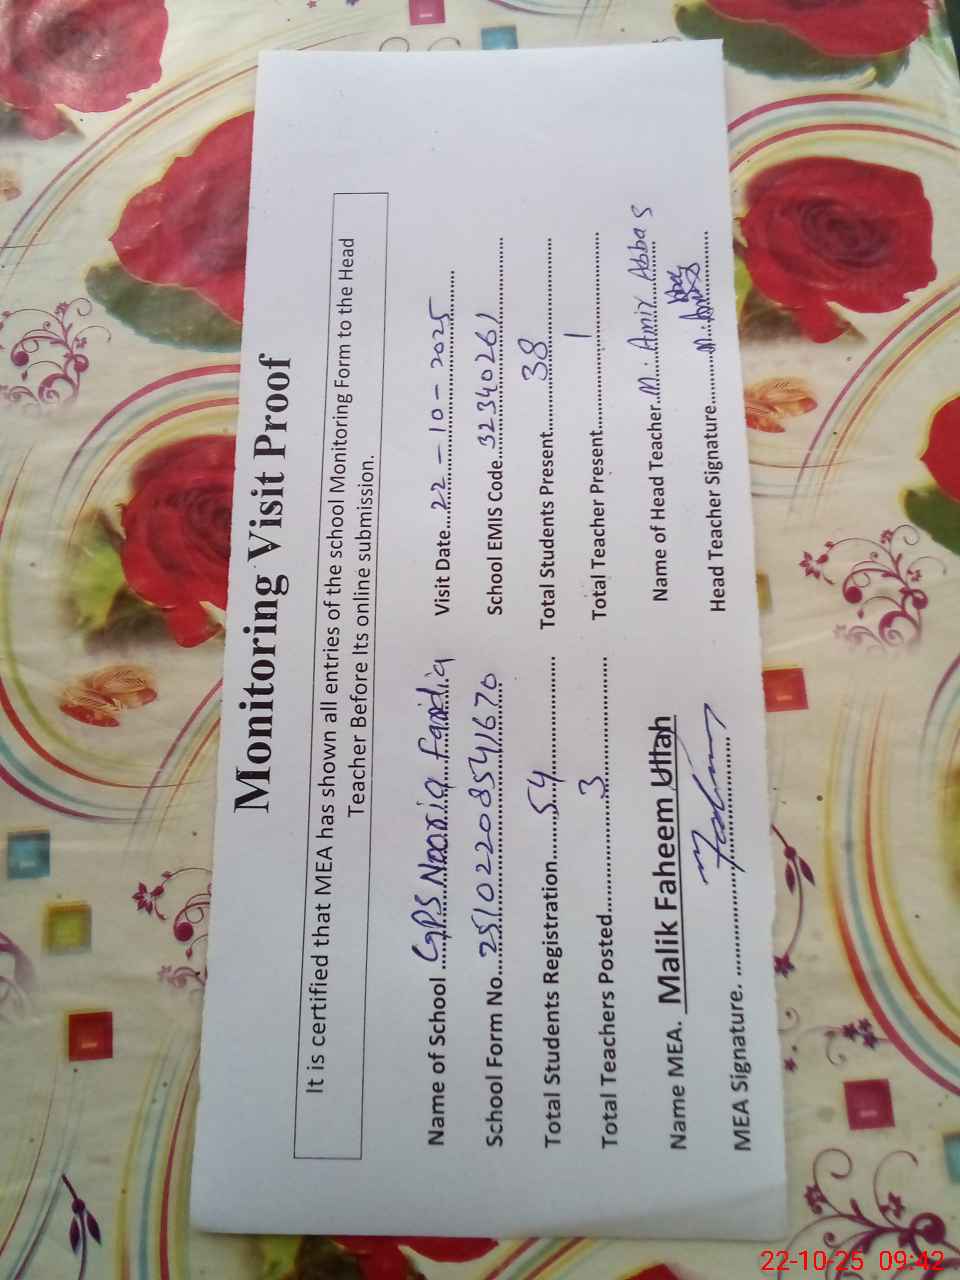 Monitoring Visit Proof
It is certified that MEA has shown all entries of the school Monitoring Form to the Head
Teacher Before Its online submission.
Name of School GPS Nooria faridia Visit Date 22-10-2025
School Form No. 25102208541670 School EMIS Code 32340261
Total Students Registration 54 Total Students Present 38
Total Teachers Posted 3 Total Teacher Present 1
Name MEA. Malik Faheem Ullah Name of Head Teacher M. Amir Abbas
MEA Signature. Head Teacher Signature
22-10-25 09:42